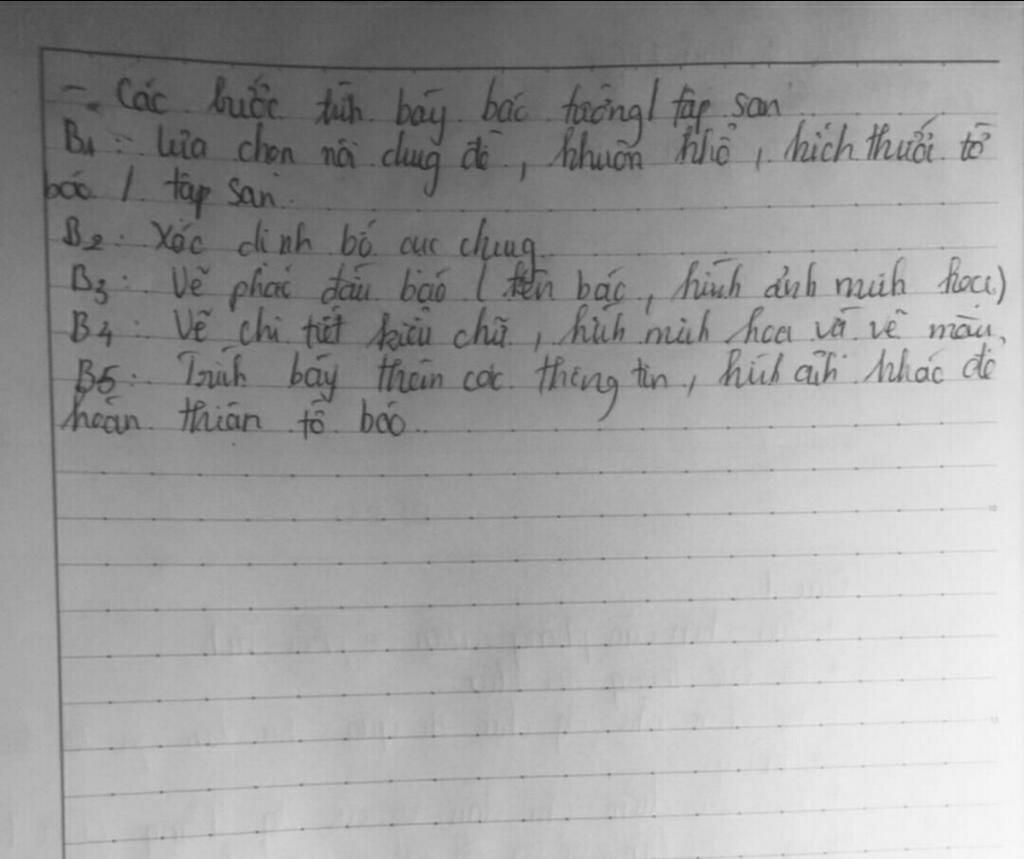 - Các bước trình bày báo tường / tập san
B1: Lựa chọn nội dung đề, khuôn khổ, kích thước tờ
báo / tập san.
B2: Xác định bố cục chung
B3: Vẽ phác đầu báo (tên báo, hình ảnh minh họa)
B4: Vẽ chi tiết kiểu chữ, hình minh họa và vẽ màu.
B5: Trình bày thêm các thông tin, hình ảnh khác để
hoàn thiện tờ báo.